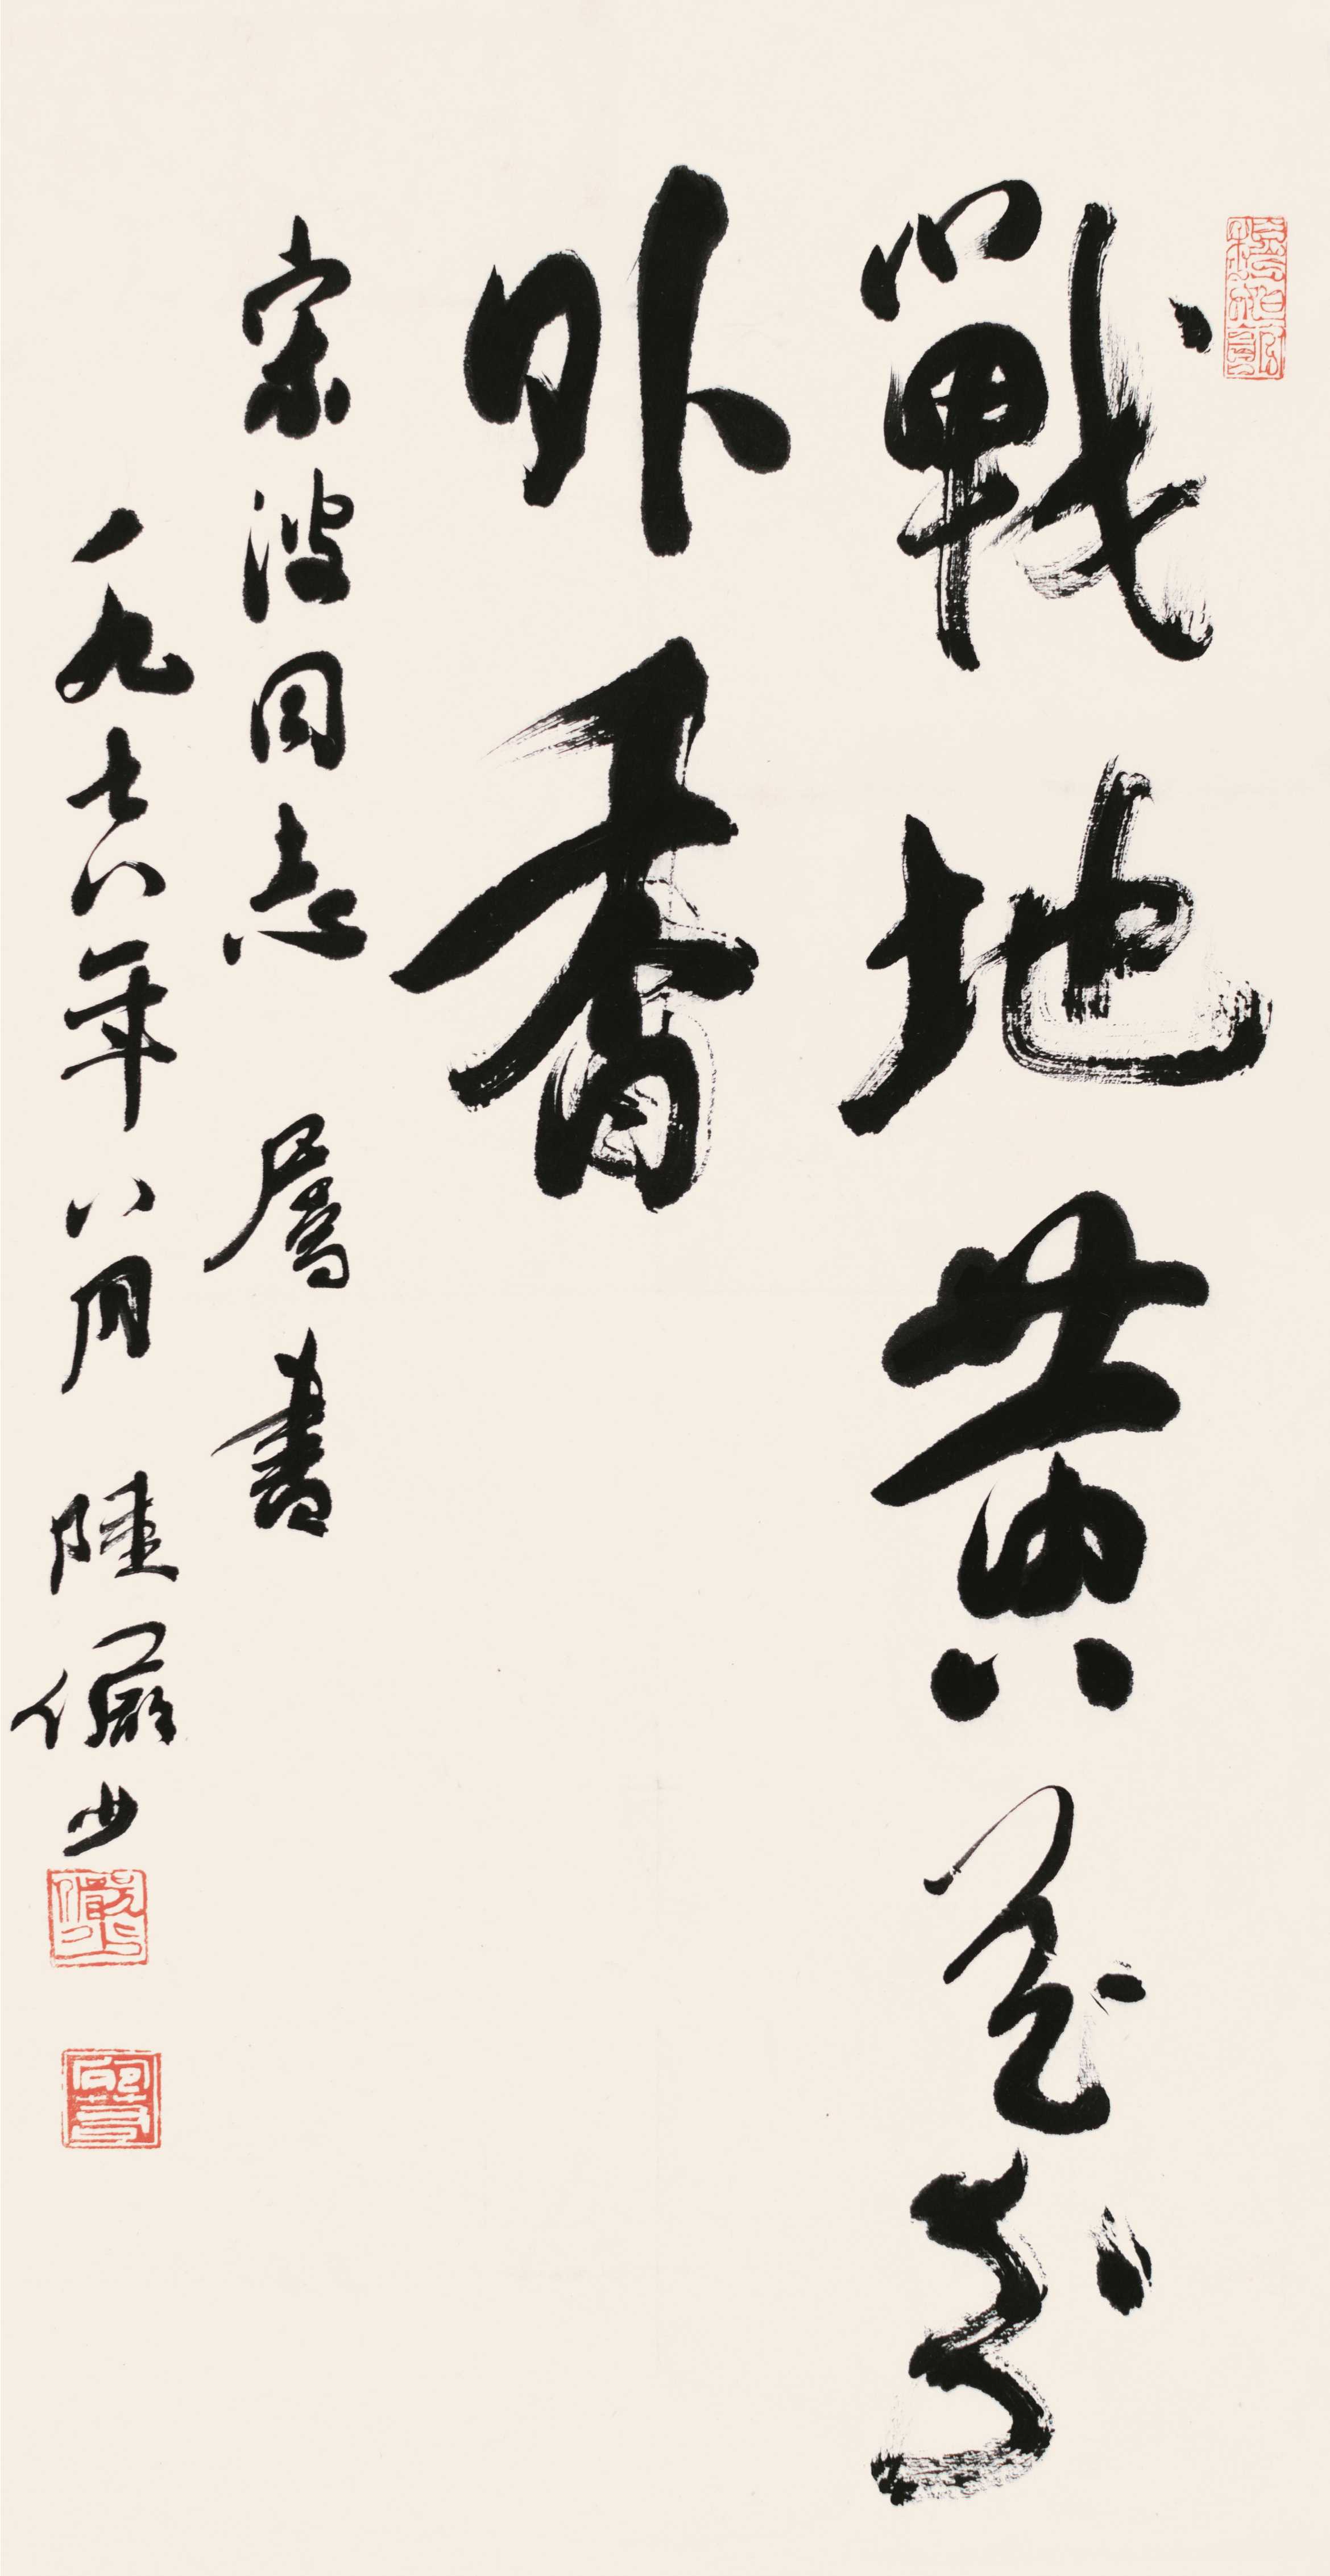 戰地黄花分
外香
宗波同志屬書
一九七八年八月陸儼少